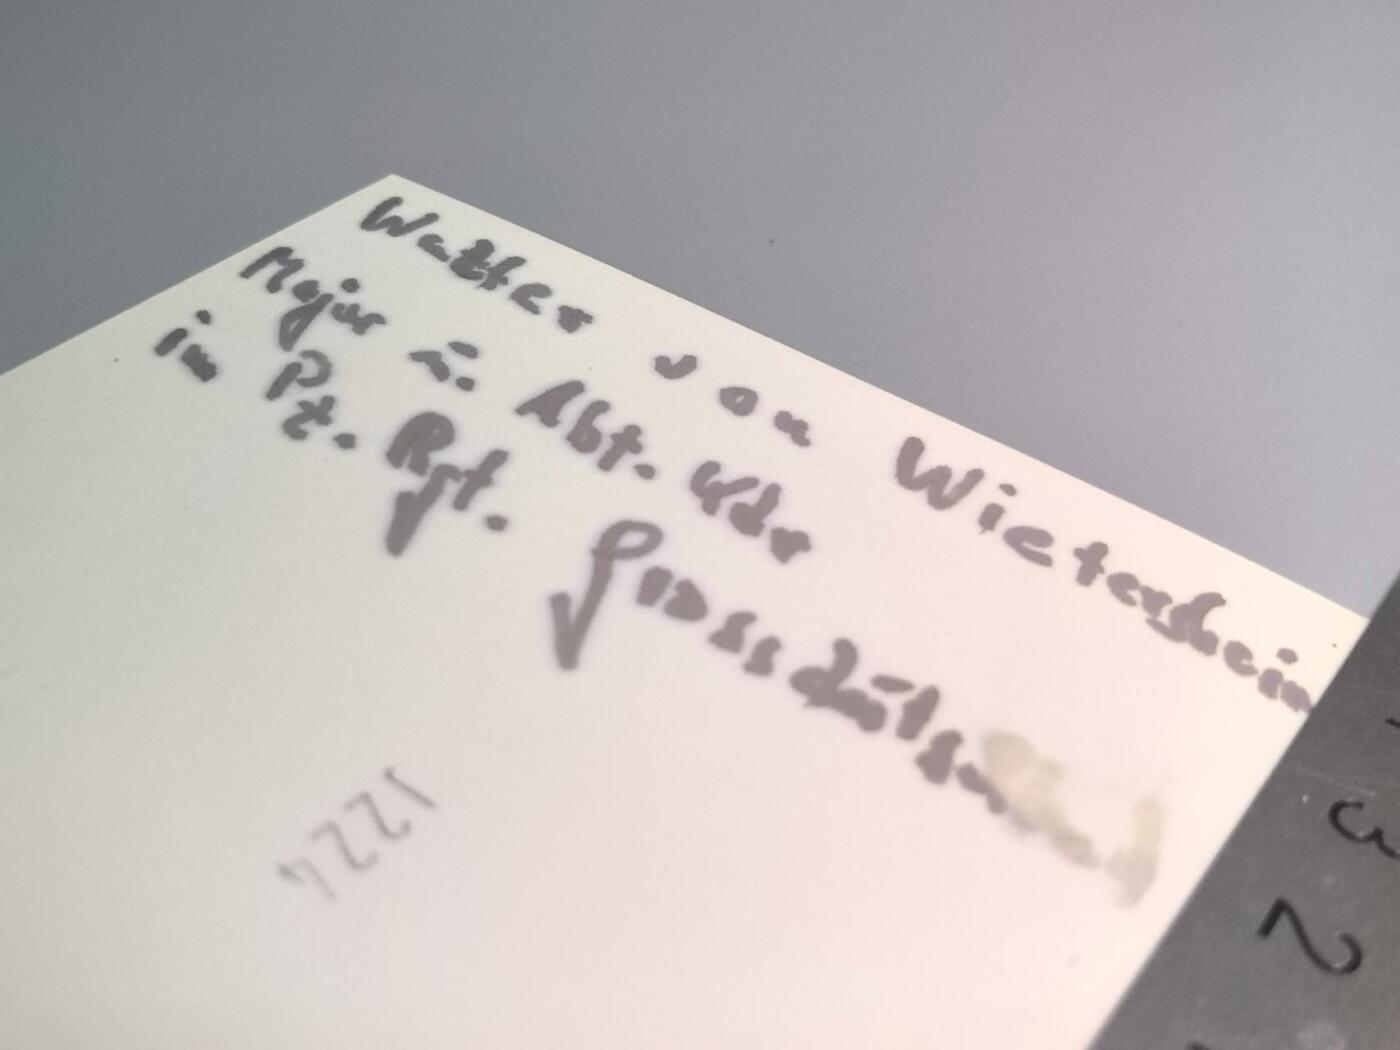 Walter von Wietersheim
Major u. Abt. Kdr
im Pz. Rgt. Grossdeutschland
1224
3
2